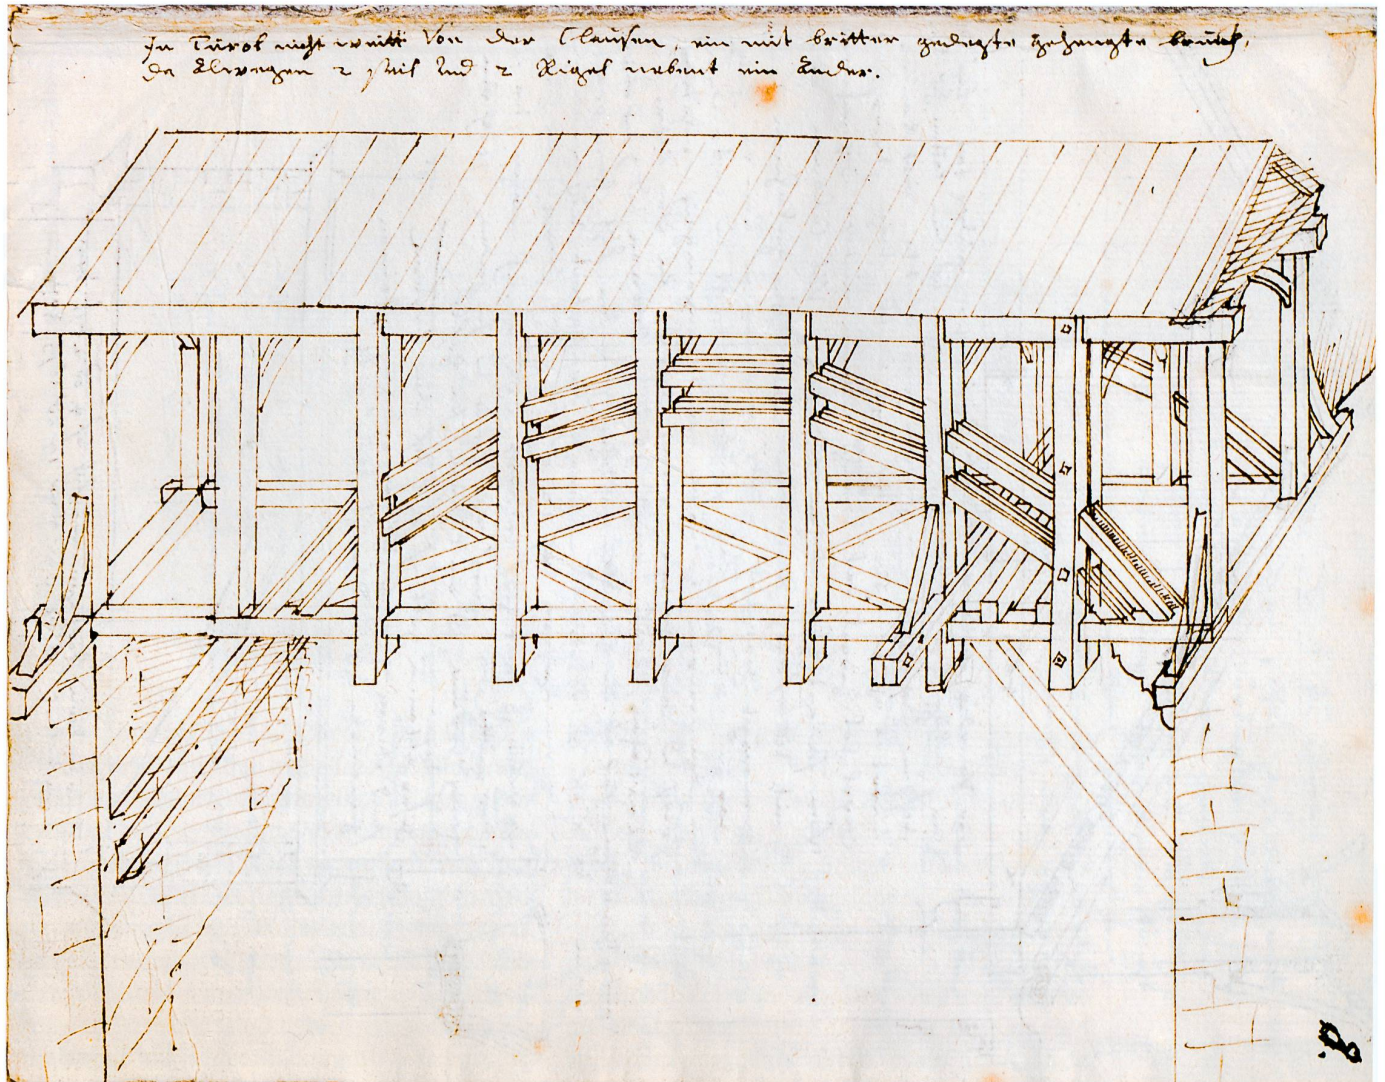 In Tirol nicht weitt von der Clausen, ein mit britter gedegte gehengte bruckh,
da Alwegen 2 stil und 2 Rigel nebent ein Ander.
8